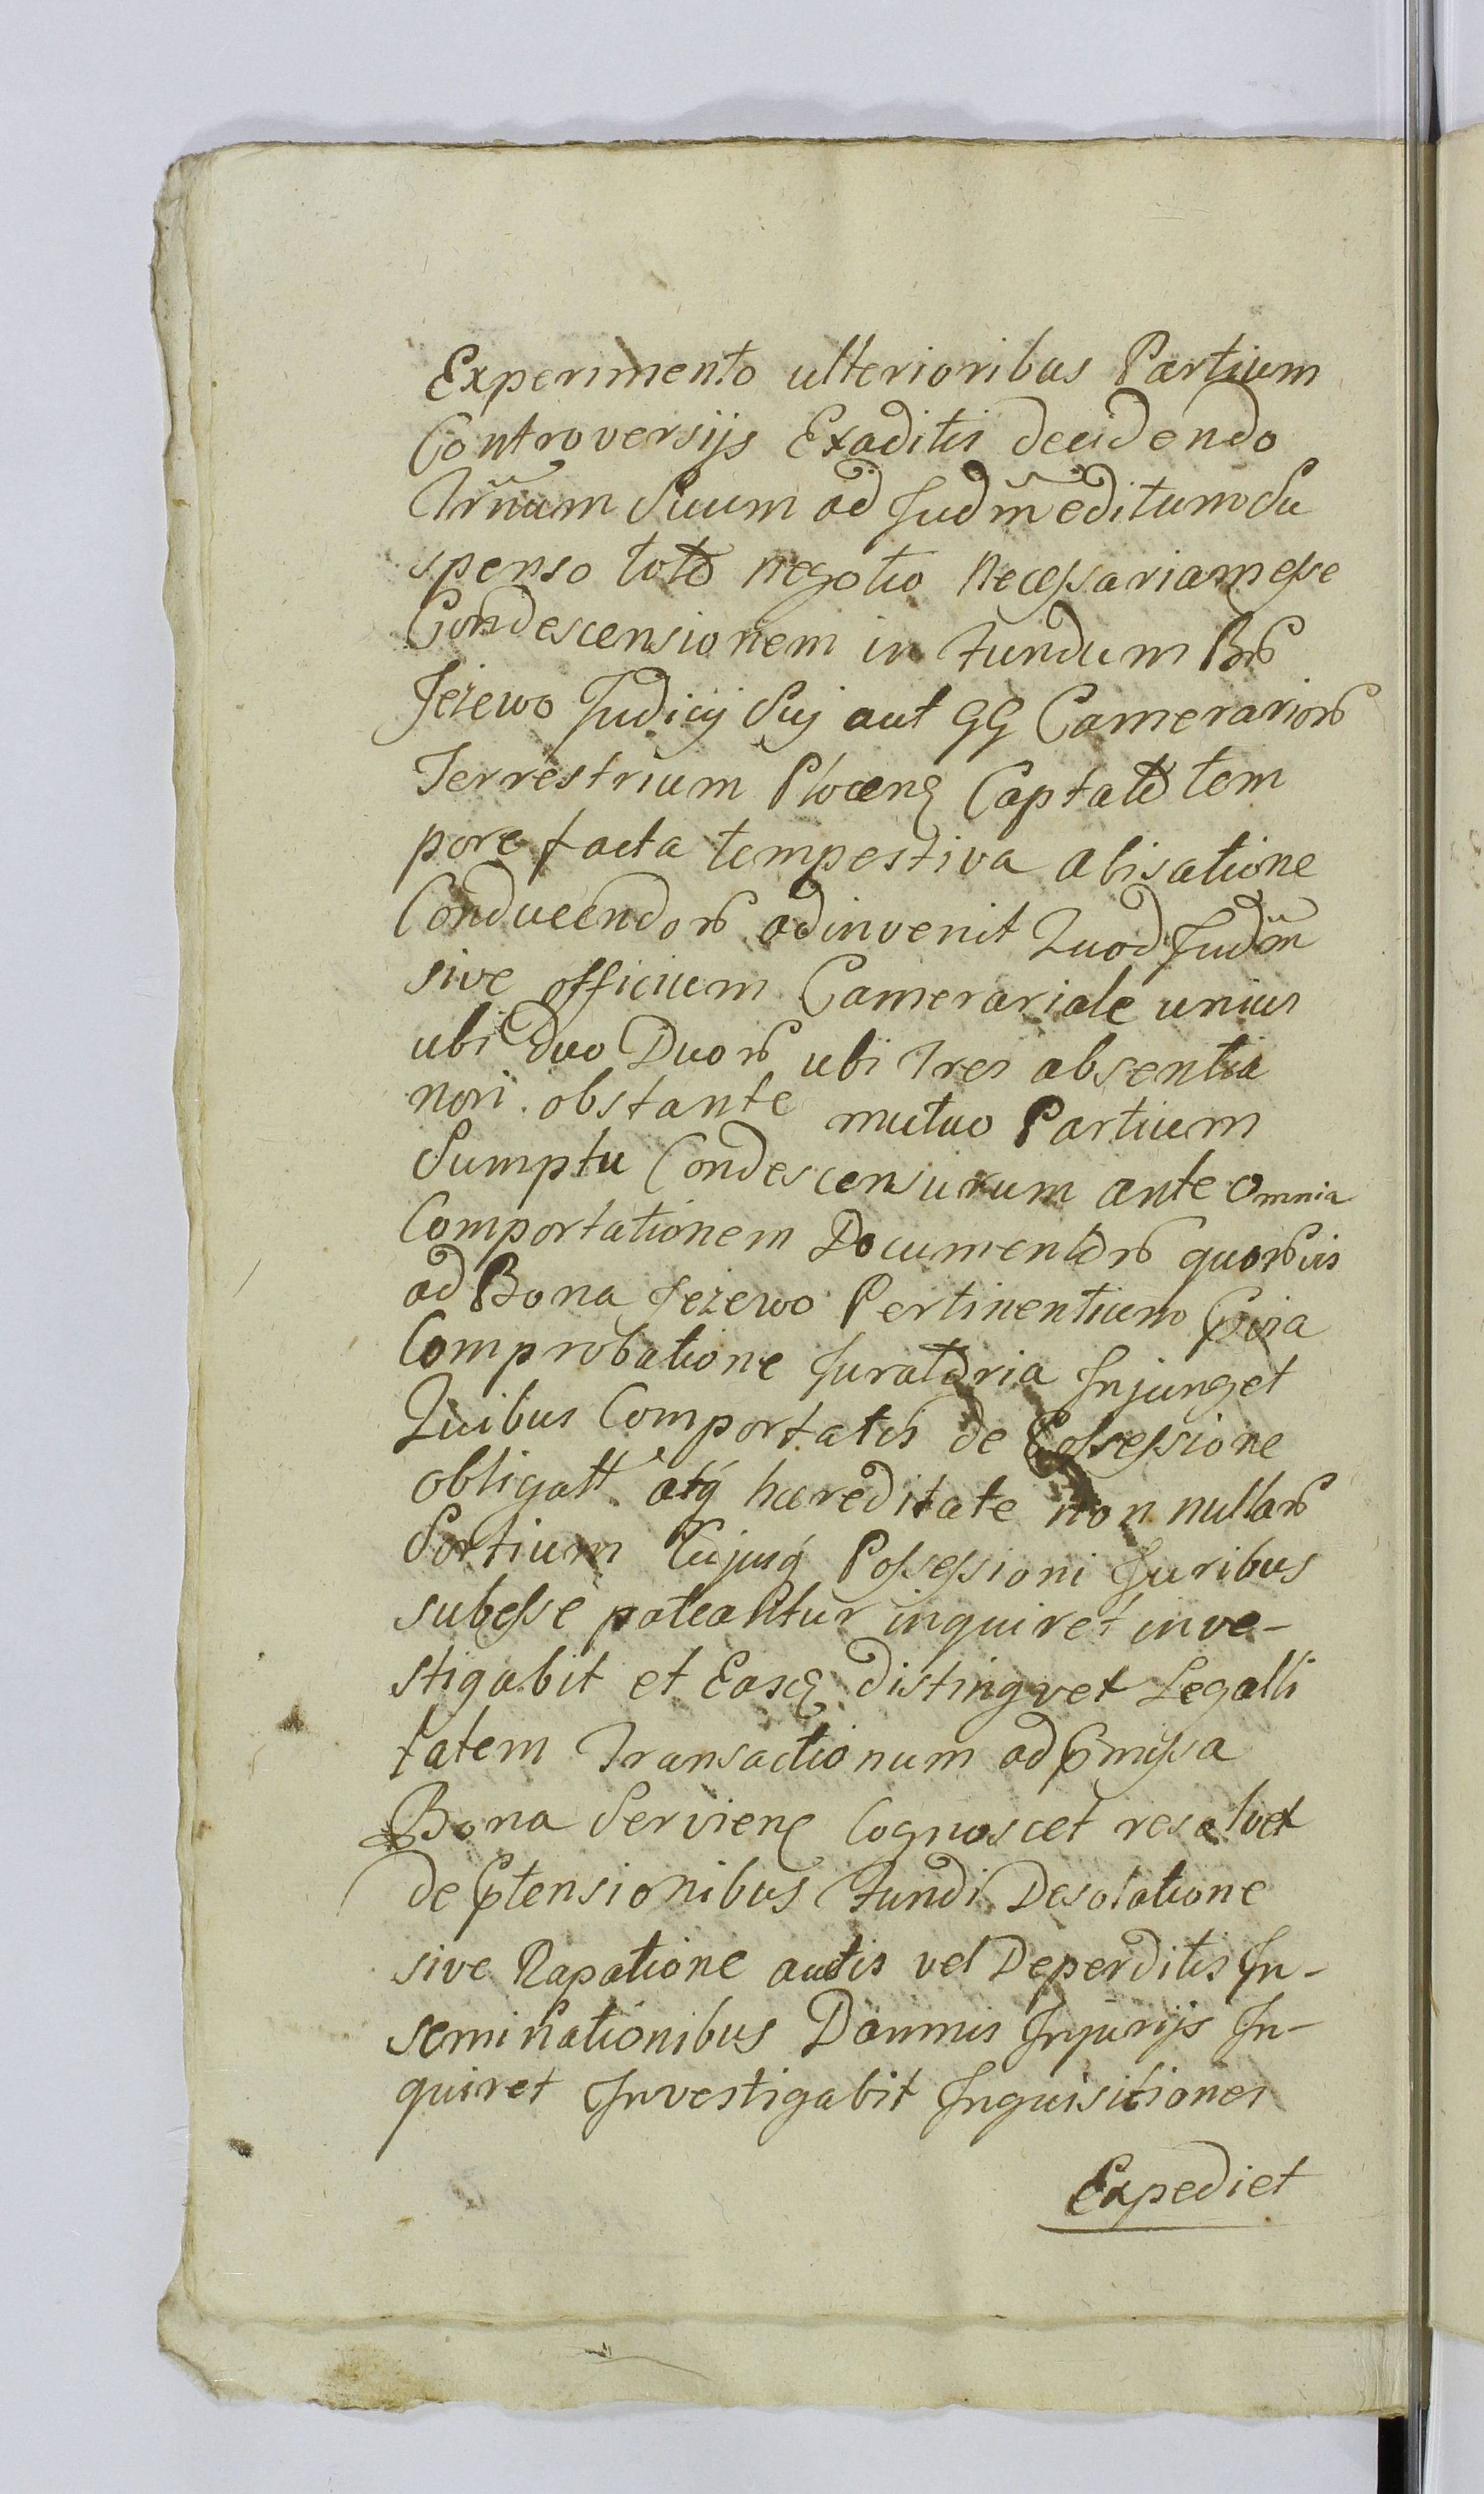 Experimento ulterioribus Partium
Controversijs Exaditis decidendo
Trm̃um Suum ad Judm̃ editum Su
spenso toto negotio necessariam esse
Condescensionem in Fundum Bor̃
Jeżewo Judicij Suj aut GG Camerarior̃
Terrestrium Plocen̄ Captato tem
pore facta tempestiva avisatione
Conducendor̃ adinvenit Quod Judm̃
sive officium Camerariale unius
ubi duo Duor̃ ubi tres absentia
non obstante mutuo Partium
Sumptu Condescensurum ante omnia
Comportationem Documentor̃ quor̃vis
ad Bona Jeżewo Pertinentium p̃via
Comprobatione Juratoria Injunget
Quibus Comportatis de Possessione
obligatt atq́ haereditate non nullar̃
Sortium Cujusq́ Possessioni Juribus
subesse poteantur inquiret inve-
stigabit et Easq̃ distingvet Legalli
tatem Transactionum ad p̃missa
Bona Servien̄ Cognoscet resolvet
de p̃tensionibus Fundi Desolatione
sive Rapatione auctis vel Deperditis In-
seminationibus Damnis Injurijs In-
quiret Investigabit Inquisitiones
Expediet